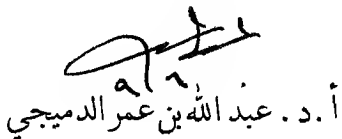 أ . د . عبد الله بن عمر الدميجي